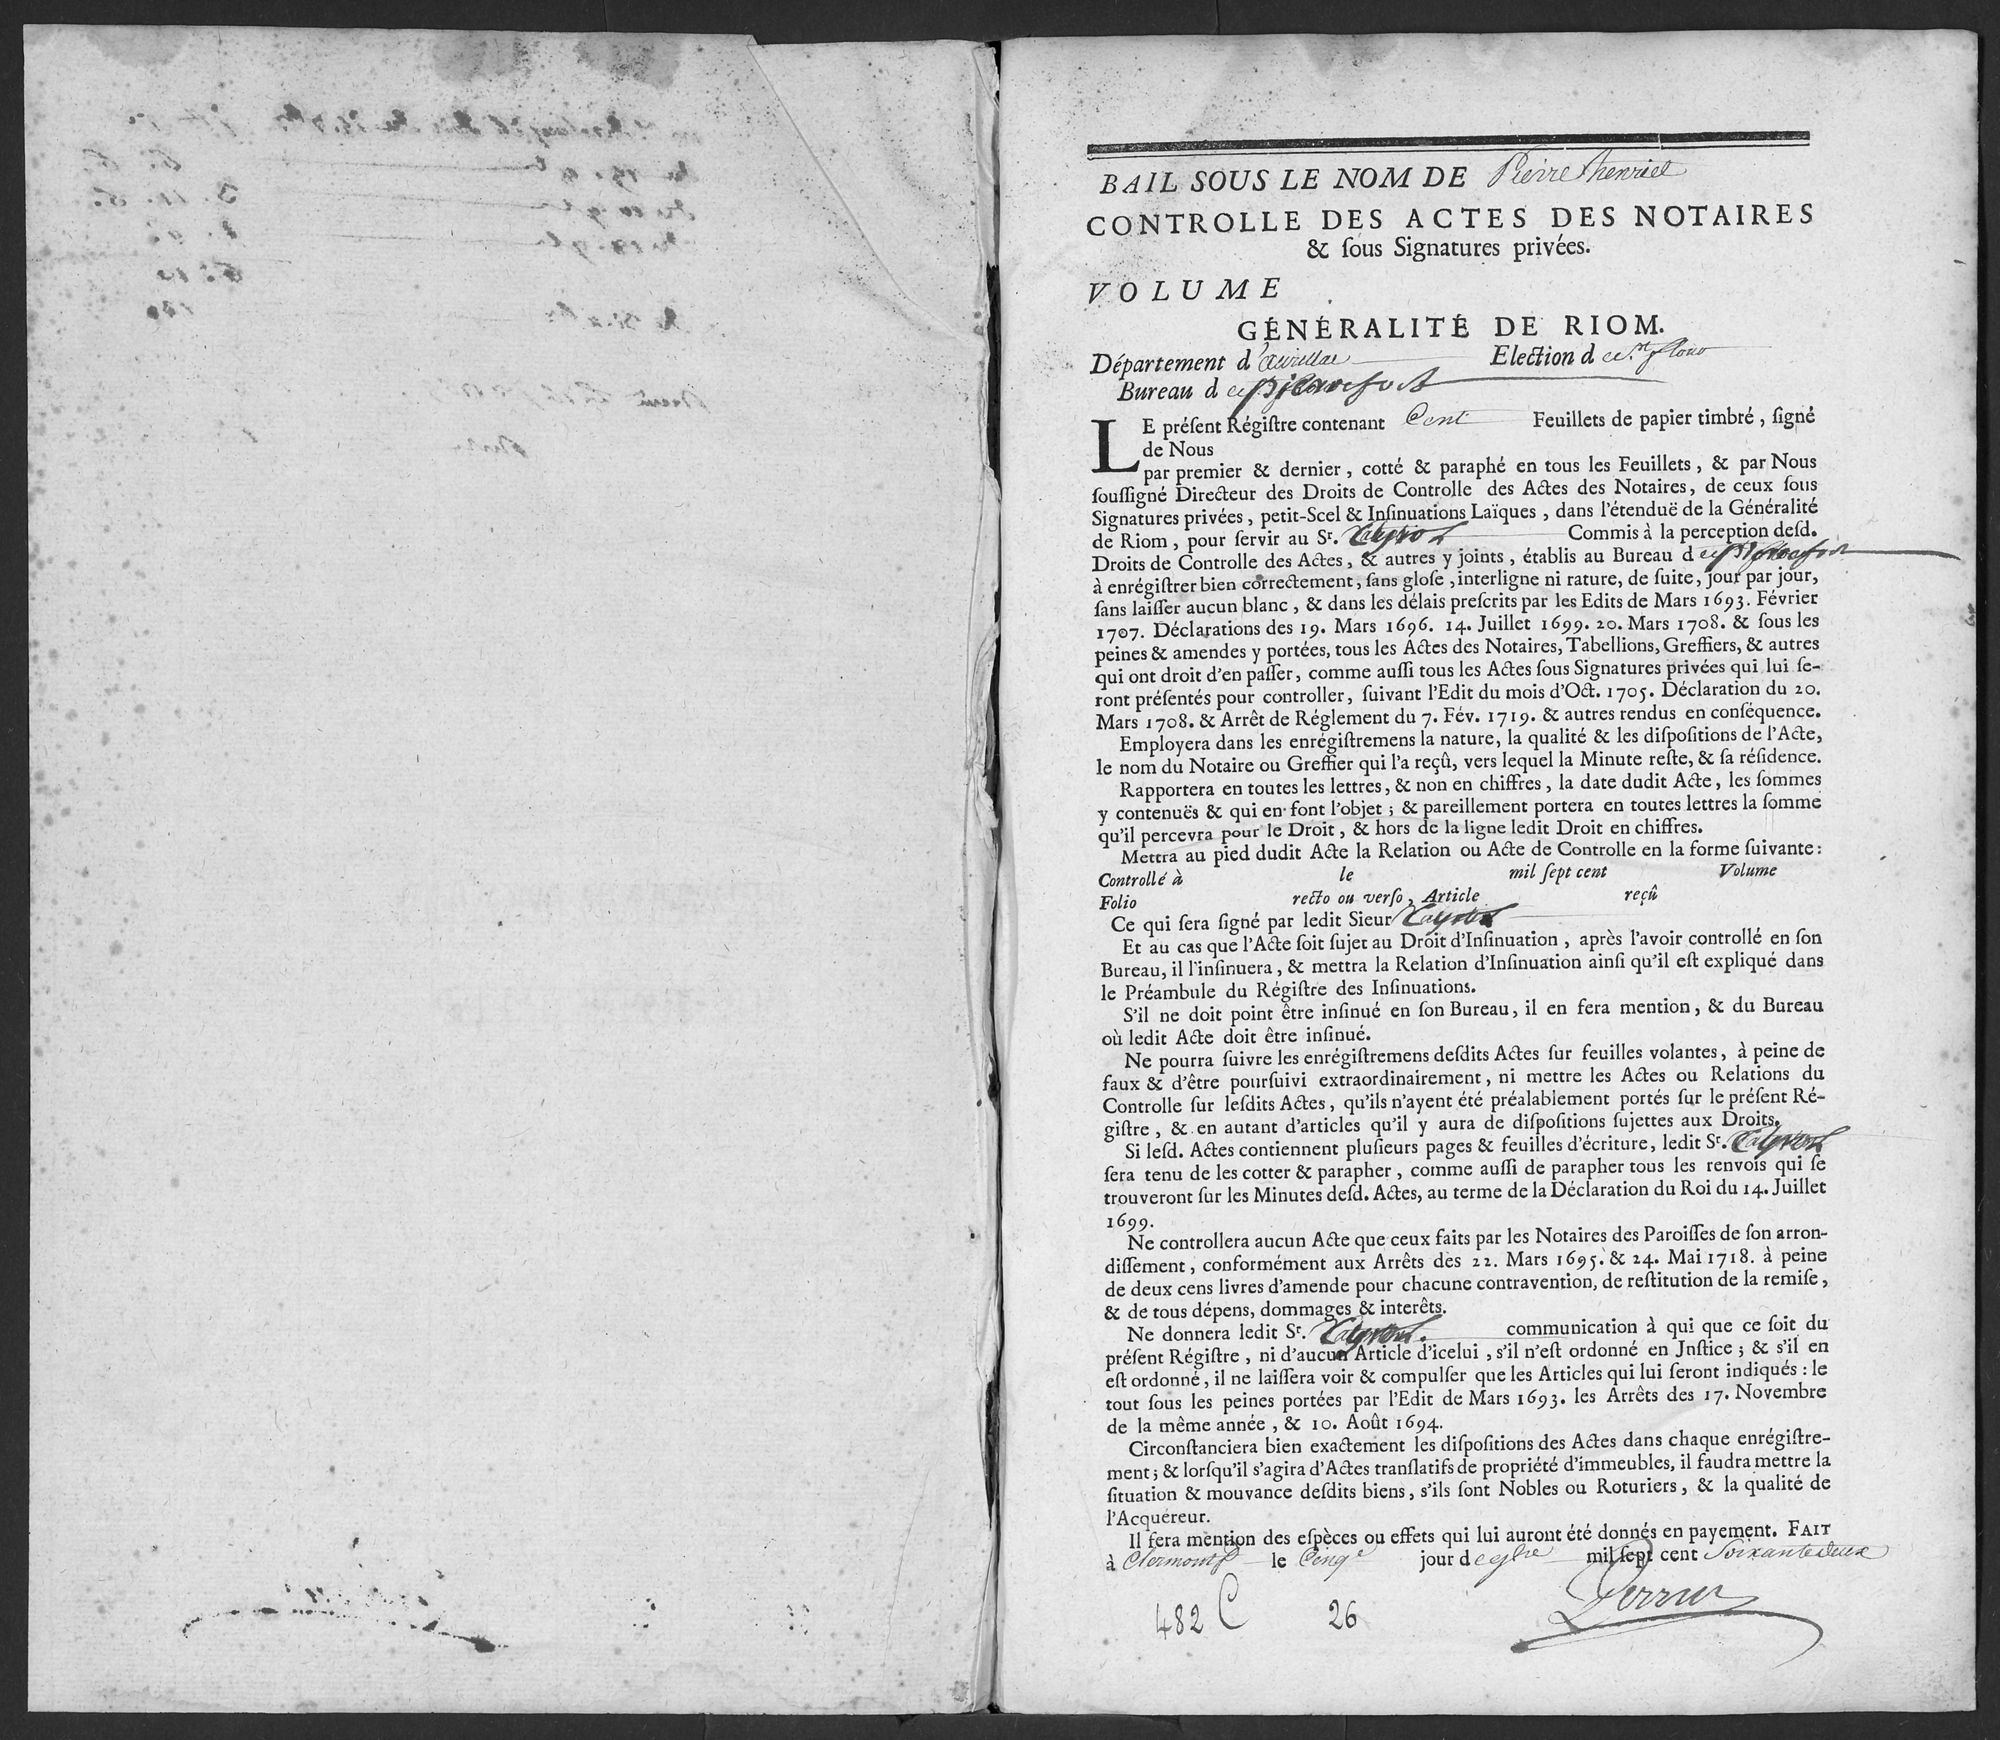 BAIL SOUS LE NOM DE Pierre henriet
CONTROLLE DES ACTES DES NOTAIRES
& ſous Signatures privées.
VOLUME
GÉNÉRALITÉ DE RIOM.
Département d'aurillac Election d e St. flour
Bureau d e Pierrefort
LE préſent Régiſtre contenant Cent Feuillets de papier timbré, ſigné
de Nous
par premier & dernier, cotté & paraphé en tous les Feuillets, & par Nous
ſouſſigné Directeur des Droits de Controlle des Actes des Notaires, de ceux ſous
Signatures privées, petit-Scel & Inſinuations Laïques, dans l'étenduë de la Généralité
de Riom, pour ſervir au Sr. Commis à la perception deſd.
Droits de Controlle des Actes, & autres y joints, établis au Bureau d e Pierrefort
à enrégiſtrer bien correctement, ſans gloſe, interligne ni rature, de ſuite, jour par jour,
ſans laiſſer aucun blanc, & dans les délais preſcrits par les Edits de Mars 1693. Février
1707. Déclarations des 19. Mars 1696. 14. Juillet 1699. 20. Mars 1708. & ſous les
peines & amendes y portées, tous les Actes des Notaires, Tabellions, Greffiers, & autres
qui ont droit d'en paſſer, comme auſſi tous les Actes ſous Signatures privées qui lui ſe-
ront préſentés pour controller, ſuivant l'Edit du mois d'Oct. 1705. Déclaration du 20.
Mars 1708. & Arrêt de Réglement du 7. Fév. 1719. & autres rendus en conſéquence.
Employera dans les enrégiſtremens la nature, la qualité & les diſpoſitions de l'Acte,
le nom du Notaire ou Greffier qui l'a reçû, vers lequel la Minute reſte, & ſa réſidence.
Rapportera en toutes les lettres, & non en chiffres, la date dudit Acte, les ſommes
y contenuës & qui en font l'objet; & pareillement portera en toutes lettres la ſomme
qu'il percevra pour le Droit, & hors de la ligne ledit Droit en chiffres.
Mettra au pied dudit Acte la Relation ou Acte de Controlle en la forme ſuivante:
Controllé à le mil ſept cent Volume
Folio recto ou verſo, Article reçû
Ce qui ſera ſigné par ledit Sieur
Et au cas que l'Acte ſoit ſujet au Droit d'Inſinuation, après l'avoir controllé en ſon
Bureau, il l'inſinuera, & mettra la Relation d'Inſinuation ainſi qu'il eſt expliqué dans
le Préambule du Régiſtre des Inſinuations.
S'il ne doit point être inſinué en ſon Bureau, il en fera mention, & du Bureau
où ledit Acte doit être inſinué.
Ne pourra ſuivre les enrégiſtremens deſdits Actes ſur feuilles volantes, à peine de
faux & d'être pourſuivi extraordinairement, ni mettre les Actes ou Relations du
Controlle ſur leſdits Actes, qu'ils n'ayent été préalablement portés ſur le préſent Ré-
giſtre, & en autant d'articles qu'il y aura de diſpoſitions ſujettes aux Droits.
Si leſd. Actes contiennent pluſieurs pages & feuilles d'écriture, ledit Sr.
ſera tenu de les cotter & parapher, comme auſſi de parapher tous les renvois qui ſe
trouveront ſur les Minutes deſd. Actes, au terme de la Déclaration du Roi du 14. Juillet
1699.
Ne controllera aucun Acte que ceux faits par les Notaires des Paroiſſes de ſon arron-
diſſement, conformément aux Arrêts des 22. Mars 1695. & 24. Mai 1718. à peine
de deux cens livres d'amende pour chacune contravention, de reſtitution de la remiſe,
& de tous dépens, dommages & interêts.
Ne donnera ledit Sr. communication à qui que ce ſoit du
préſent Régiſtre, ni d'aucun Article d'icelui, s'il n'eſt ordonné en Jnſtice; & s'il en
eſt ordonné, il ne laiſſera voir & compulſer que les Articles qui lui ſeront indiqués: le
tout ſous les peines portées par l'Edit de Mars 1693. les Arrêts des 17. Novembre
de la même année, & 10. Août 1694.
Circonſtanciera bien exactement les diſpoſitions des Actes dans chaque enrégiſtre-
ment; & lorſqu'il s'agira d'Actes tranſlatifs de propriété d'immeubles, il faudra mettre la
ſituation & mouvance deſdits biens, s'ils ſont Nobles ou Roturiers, & la qualité de
l'Acquéreur.
Il fera mention des eſpèces ou effets qui lui auront été donnés en payement. FAIT
à Clermont le Cinqe jour d mil ſept cent Soixante deux
Perrier
482 C 26